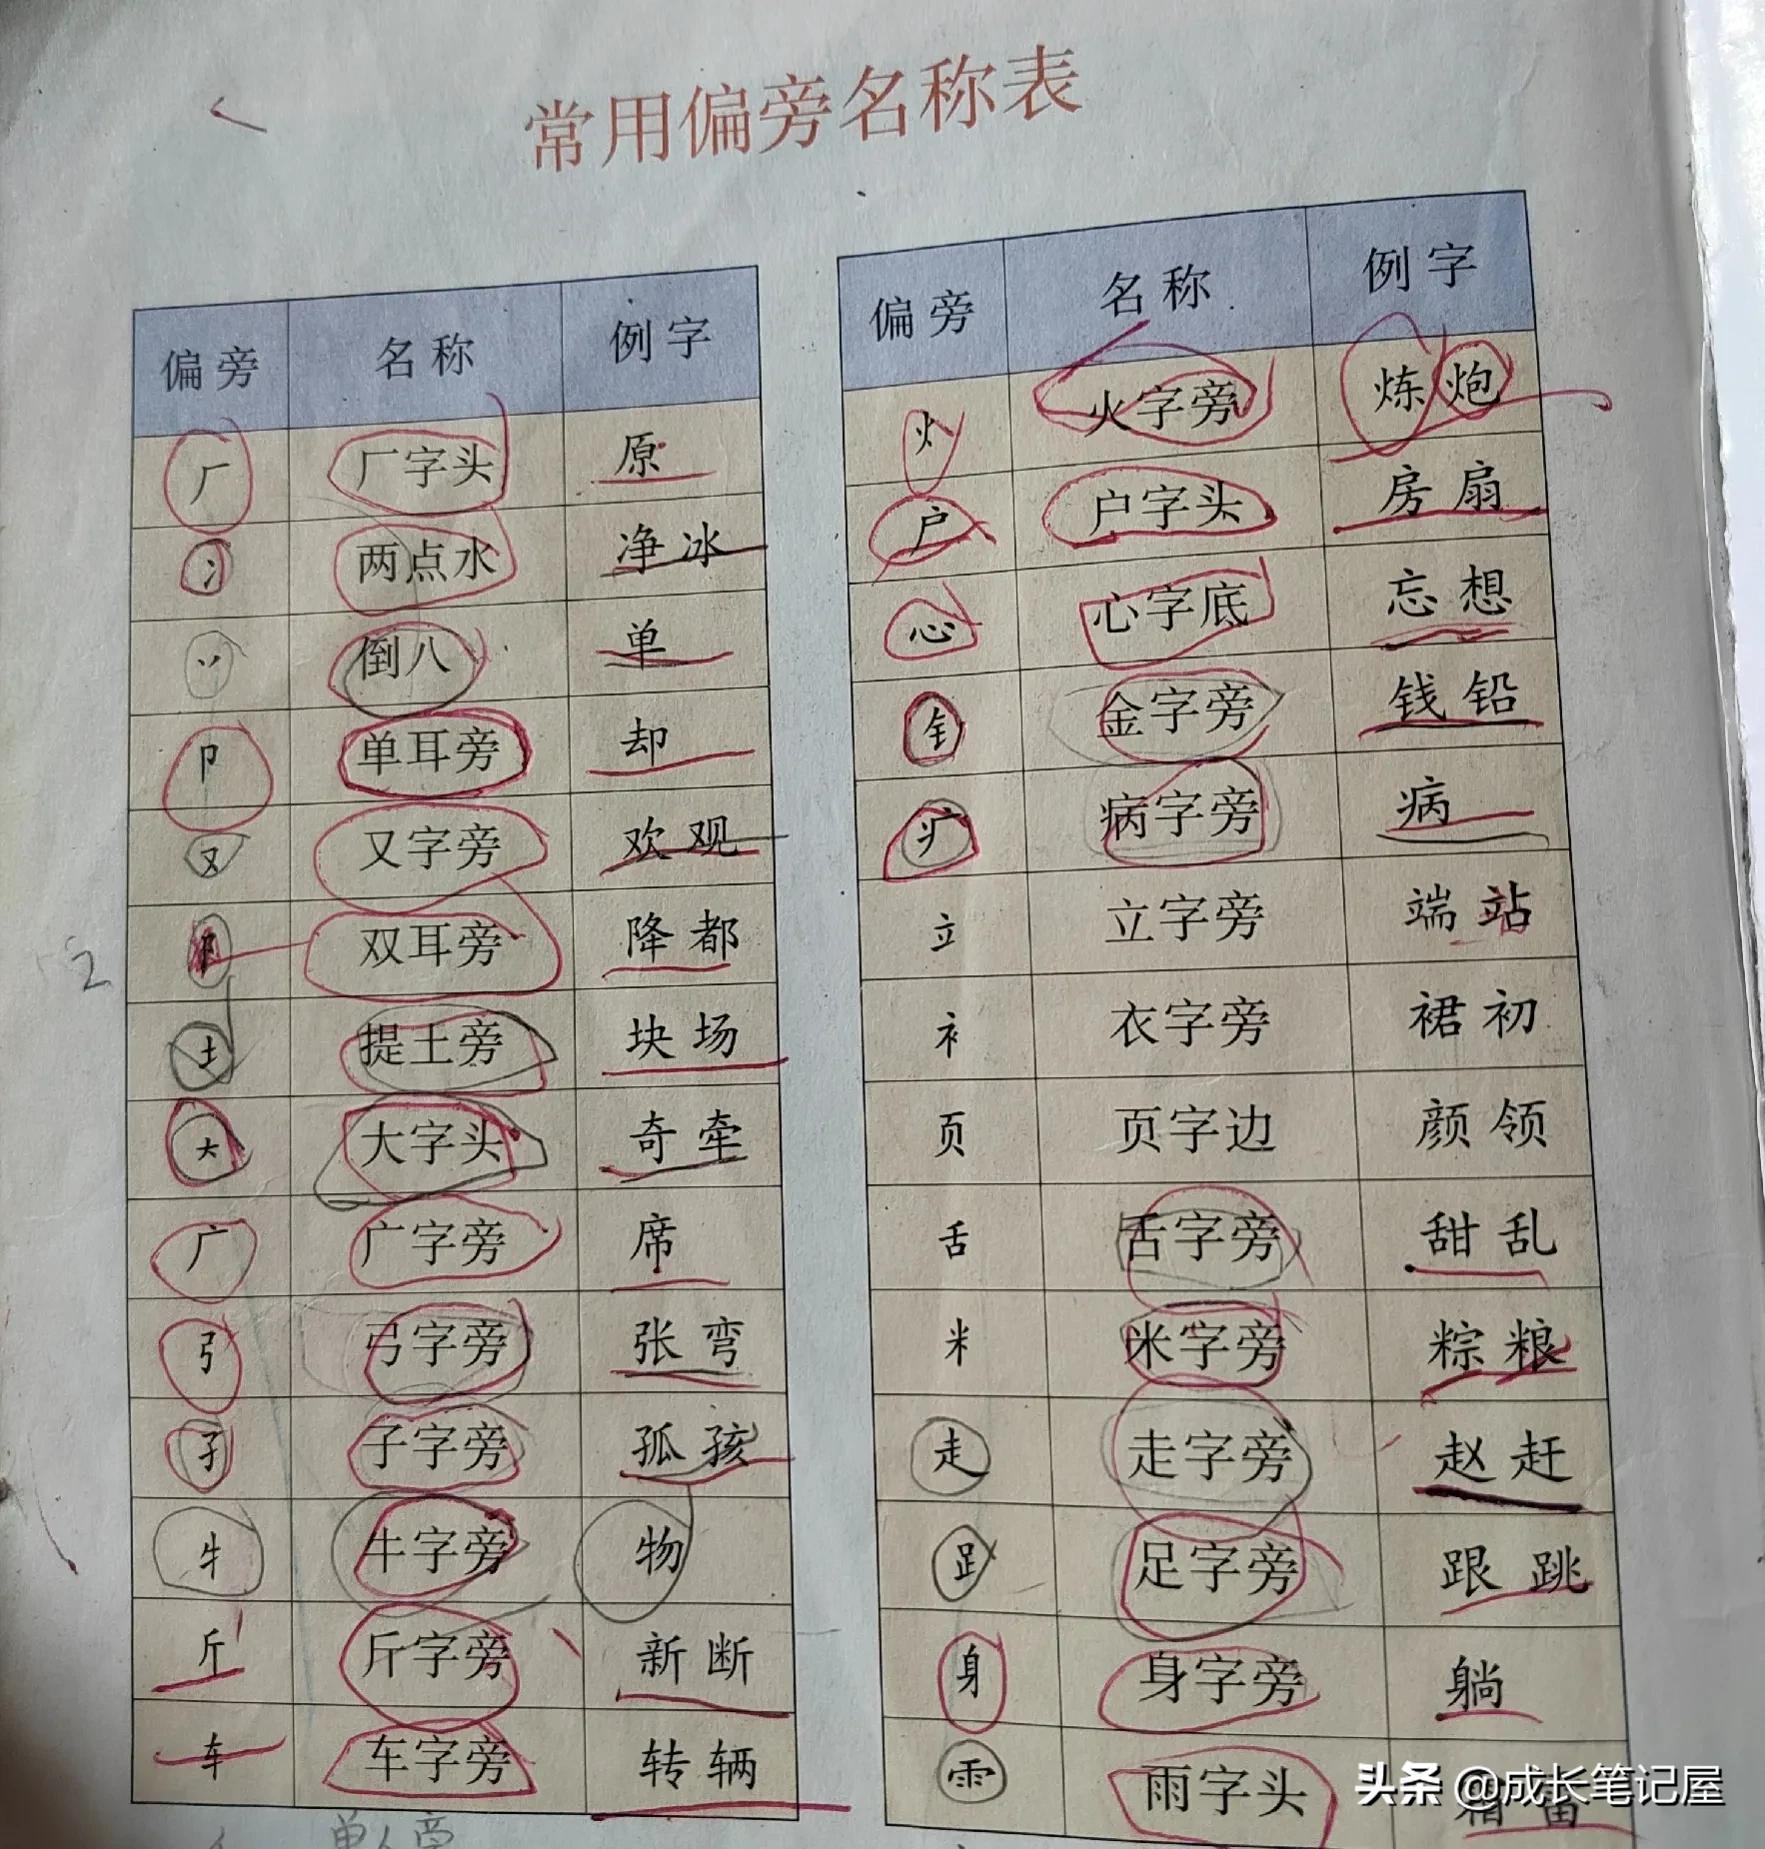 常用偏旁名称表
偏旁 名称 例字
厂 厂字头 原
冫 两点水 净 冰
丷 倒八 单
卩 单耳旁 却
又 又字旁 欢 观
阝 双耳旁 降 都
土 提土旁 块 场
大 大字头 奇 牵
广 广字旁 席
弓 弓字旁 张 弯
子 子字旁 孤 孩
牜 牛字旁 物
斤 斤字旁 新 断
车 车字旁 转 辆
偏旁 名称 例字
火 火字旁 炼 炮
户 户字头 房 扇
心 心字底 忘 想
钅 金字旁 钱 铅
疒 病字旁 病
立 立字旁 端 站
衤 衣字旁 裙 初
页 页字边 颜 领
舌 舌字旁 甜 乱
米 米字旁 粽 粮
走 走字旁 赵 赶
𧾷 足字旁 跟 跳
身 身字旁 躺
雨 雨字头
2
单人旁
头条 @成长笔记屋